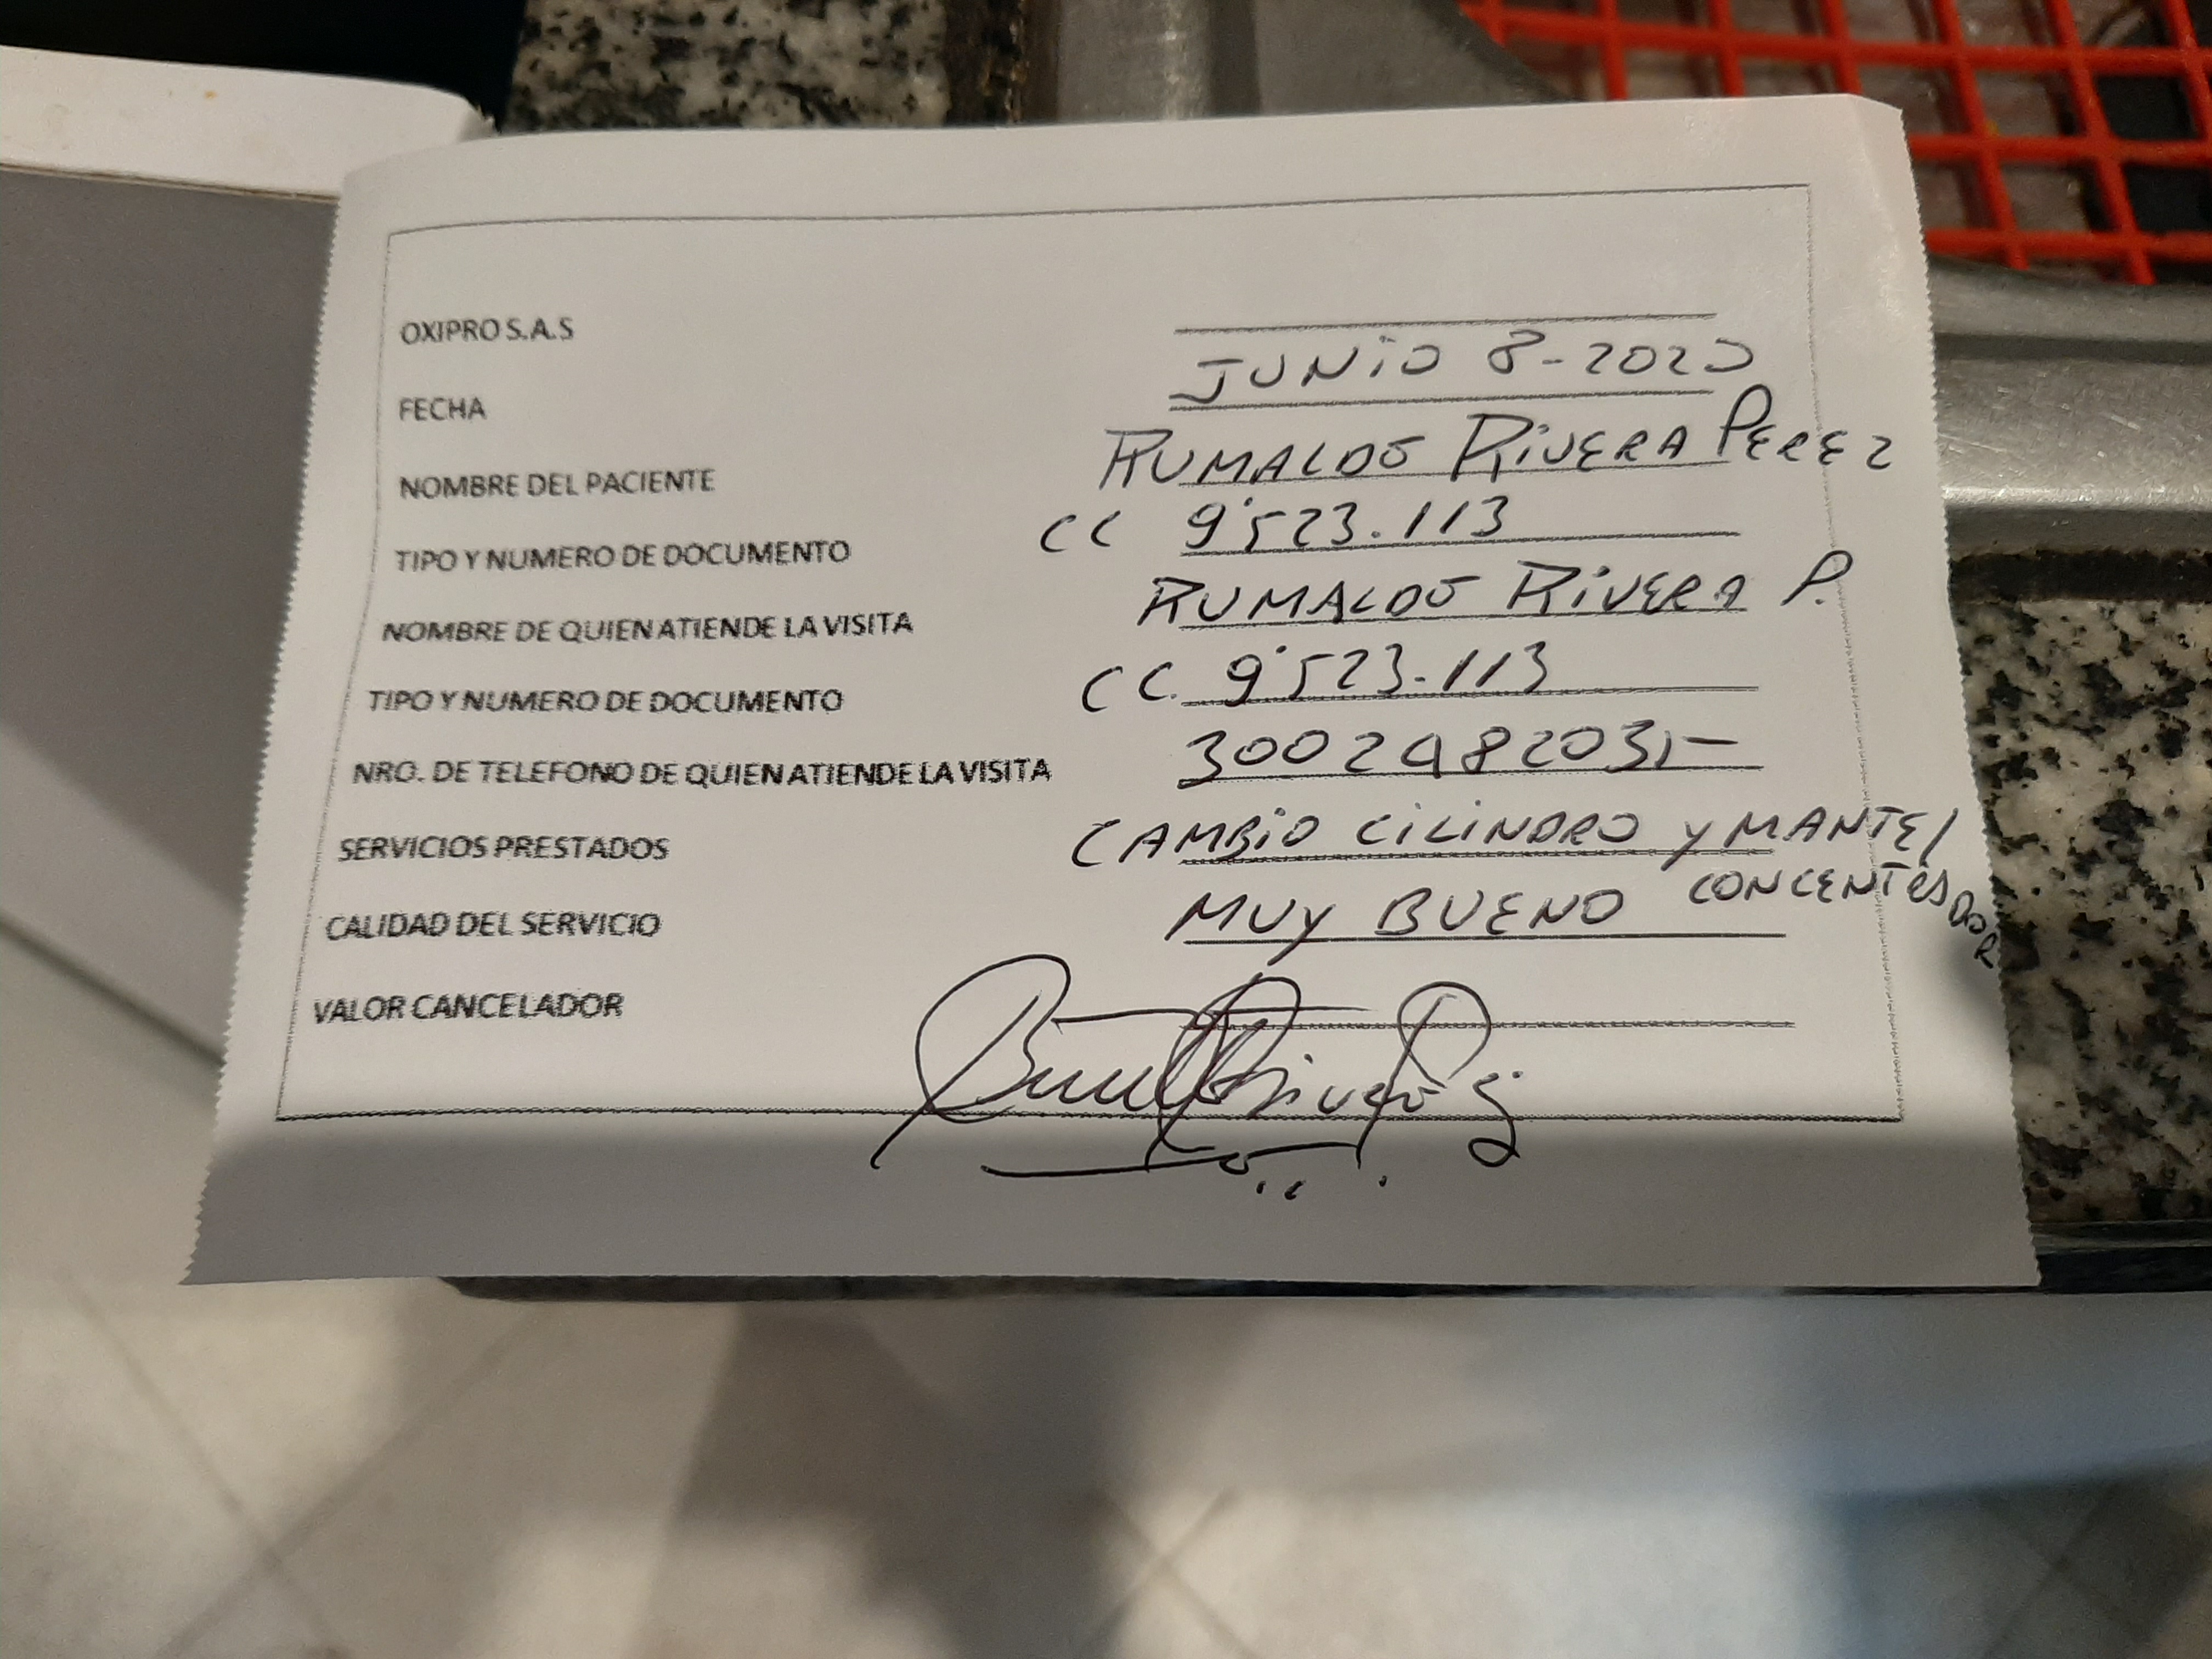 OXIPRO S.A.S
FECHA JUNIO 8-2020
NOMBRE DEL PACIENTE RUMALDO RIVERA PEREZ
TIPO Y NUMERO DE DOCUMENTO CC 9'523.113
NOMBRE DE QUIEN ATIENDE LA VISITA RUMALDO RIVERA P.
TIPO Y NUMERO DE DOCUMENTO CC. 9'523.113
NRO. DE TELEFONO DE QUIEN ATIENDE LA VISITA
SERVICIOS PRESTADOS CAMBIO CILINDRO Y MANTE/
CALIDAD DEL SERVICIO MUY BUENO
VALOR CANCELADOR